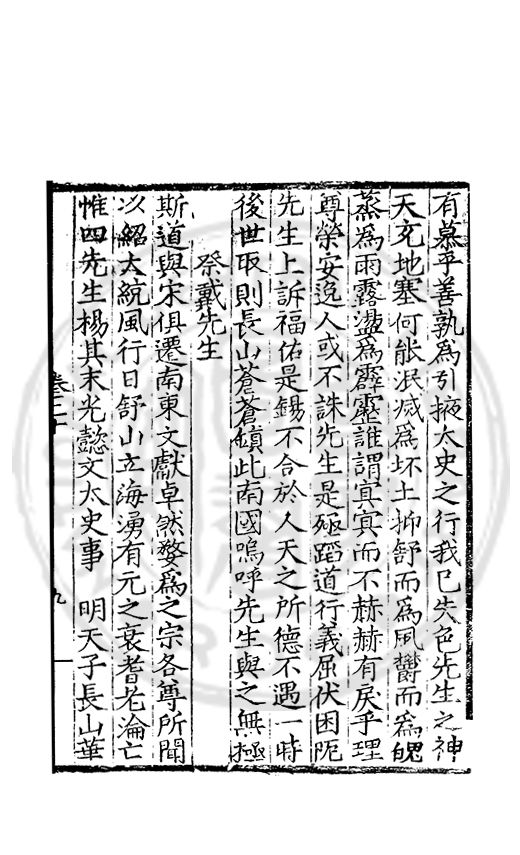 有慕乎善孰為引掖太史之行我已失色先生之神
天充地塞何能泯滅為坏土抑舒而為風欝而為
蒸為雨露盪為霹靂誰謂冥冥而不赫赫有戾乎理
尊榮安逸人或不誅先生是殛蹈道行義屈伏困阨
先生上訴福佑是錫不合於人天之所德不遇一時
後世取則長山蒼蒼鎮此南國嗚呼先生與之無極
祭戴先生
斯道與宋俱遷南東文獻卓然婺為之宗各尊所聞
以紹大統風行日舒山立海湧有元之衰耆老淪亡
惟四先生楊其末光懿文太史事 明天子長山華
卷二十 九